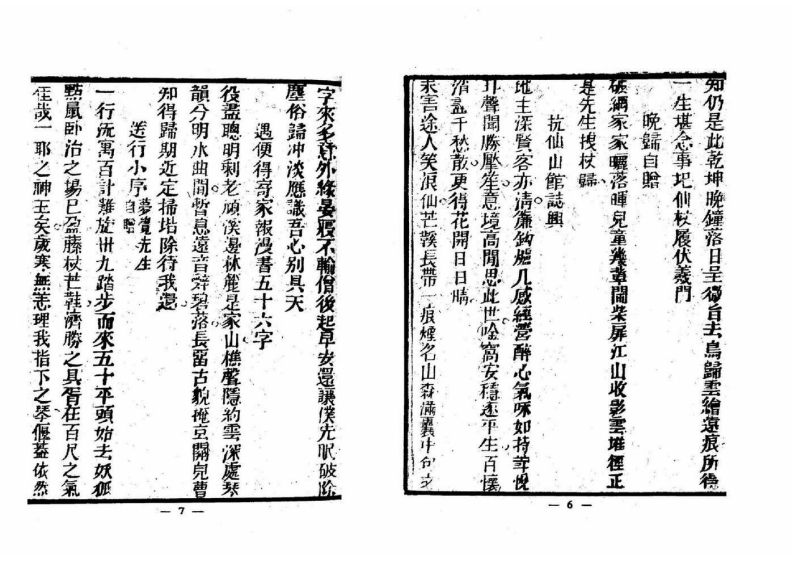 知仍是此乾坤晚鐘落日呈微旨去鳥歸雲繪遠痕所得
一生堪念事圯仙杖履伏羲門
晚歸自贈
破網家家曬落暉兒童幾輩鬧柴扉江山收影雲堆徑正
是先生拽杖歸
抗仙山館誌興
地主深賢客亦清簾鈎爐几感經營醉心氣味如持莘悅
耳聲聞勝壓笙意境高閒思此世唫窩安穩遂平生百懷
消盡千愁散更得花開日日晴
來吾途人笑浪仙芒鞵長帶一痕煙名山森滿囊中句文
— 6 —
字來多意外緣晏寢不輸僧後起早安還讓僕先眠破除
塵俗歸冲淡應識吾心別具天
遇便得寄家報漫書五十六字
役盡聰明剩老頑溪邊林麓是家山樵聲隱約雲深處琴
韻分明水曲間暫息遠音辭碧落長留古貌掩京關兒曹
知得歸期近定掃培除待我還
送行小序 夢覺先生自贈
一行既寓百計難旋卅九踏步而來五十平頭始去妖狐
點鼠卧治之場已盈藤杖芒鞋濟勝之具胥在百尺之氣
佳哉一耶之神王矣歲寒無恙理我指下之琴偃蓋依然
— 7 —